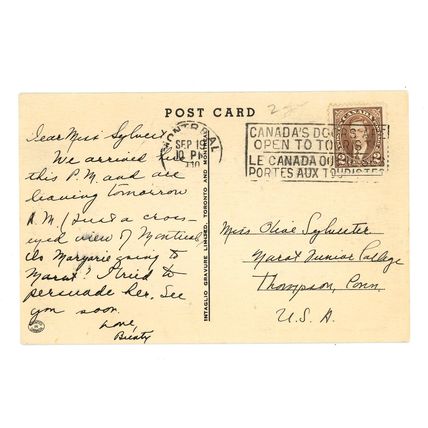 POST CARD
Dear Miss Sylvester
We arrived here
this P.M. and are
leaving tomorrow
A.M. (Just a cross-
eyed view of Montreal
Is Marjorie going to
Marot? I tried to
persuade her. See
you soon.
Love,
MONTREAL
SEP 19
10 PM
CANADA'S DOORS ARE
OPEN TO TOURISTS
LE CANADA OUVRE
PORTES AUX TOURISTES
CANADA
2 2
INTAGLIO GRAVURE LIMITED, TORONTO AND MONTREAL
Miss Olive Sylvester
Marot Junior College
Thompson, Conn.
U.S.A.